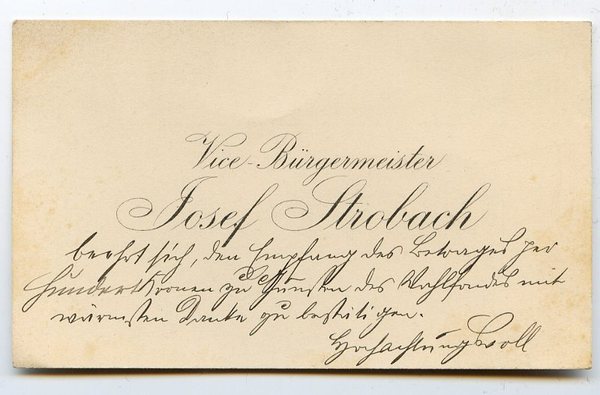 Vice-Bürgermeister
Josef Strobach
beehrt sich, den Empfang des Betrages per
Hundert Kronen zu Gunsten des Wahlfondes mit
wärmsten Danke zu bestätigen.
Hochachtungsvoll